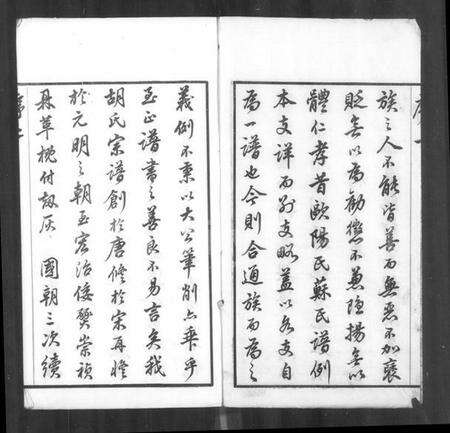 族之人不能皆善而無惡不加褒
貶無以為勸懲不兼隱揚無以
體仁孝昔歐陽氏蘇氏譜例
本支詳而別支略蓋以各支自
為一譜也今則合通族而為之
義例不秉以大公筆削亦乖乎
至正譜書之善良不易言矣我
胡氏宗譜創於唐修於宋再修
於元明之朝至宏治倭燹崇禎
兵草枕付劫灰 國朝三次續